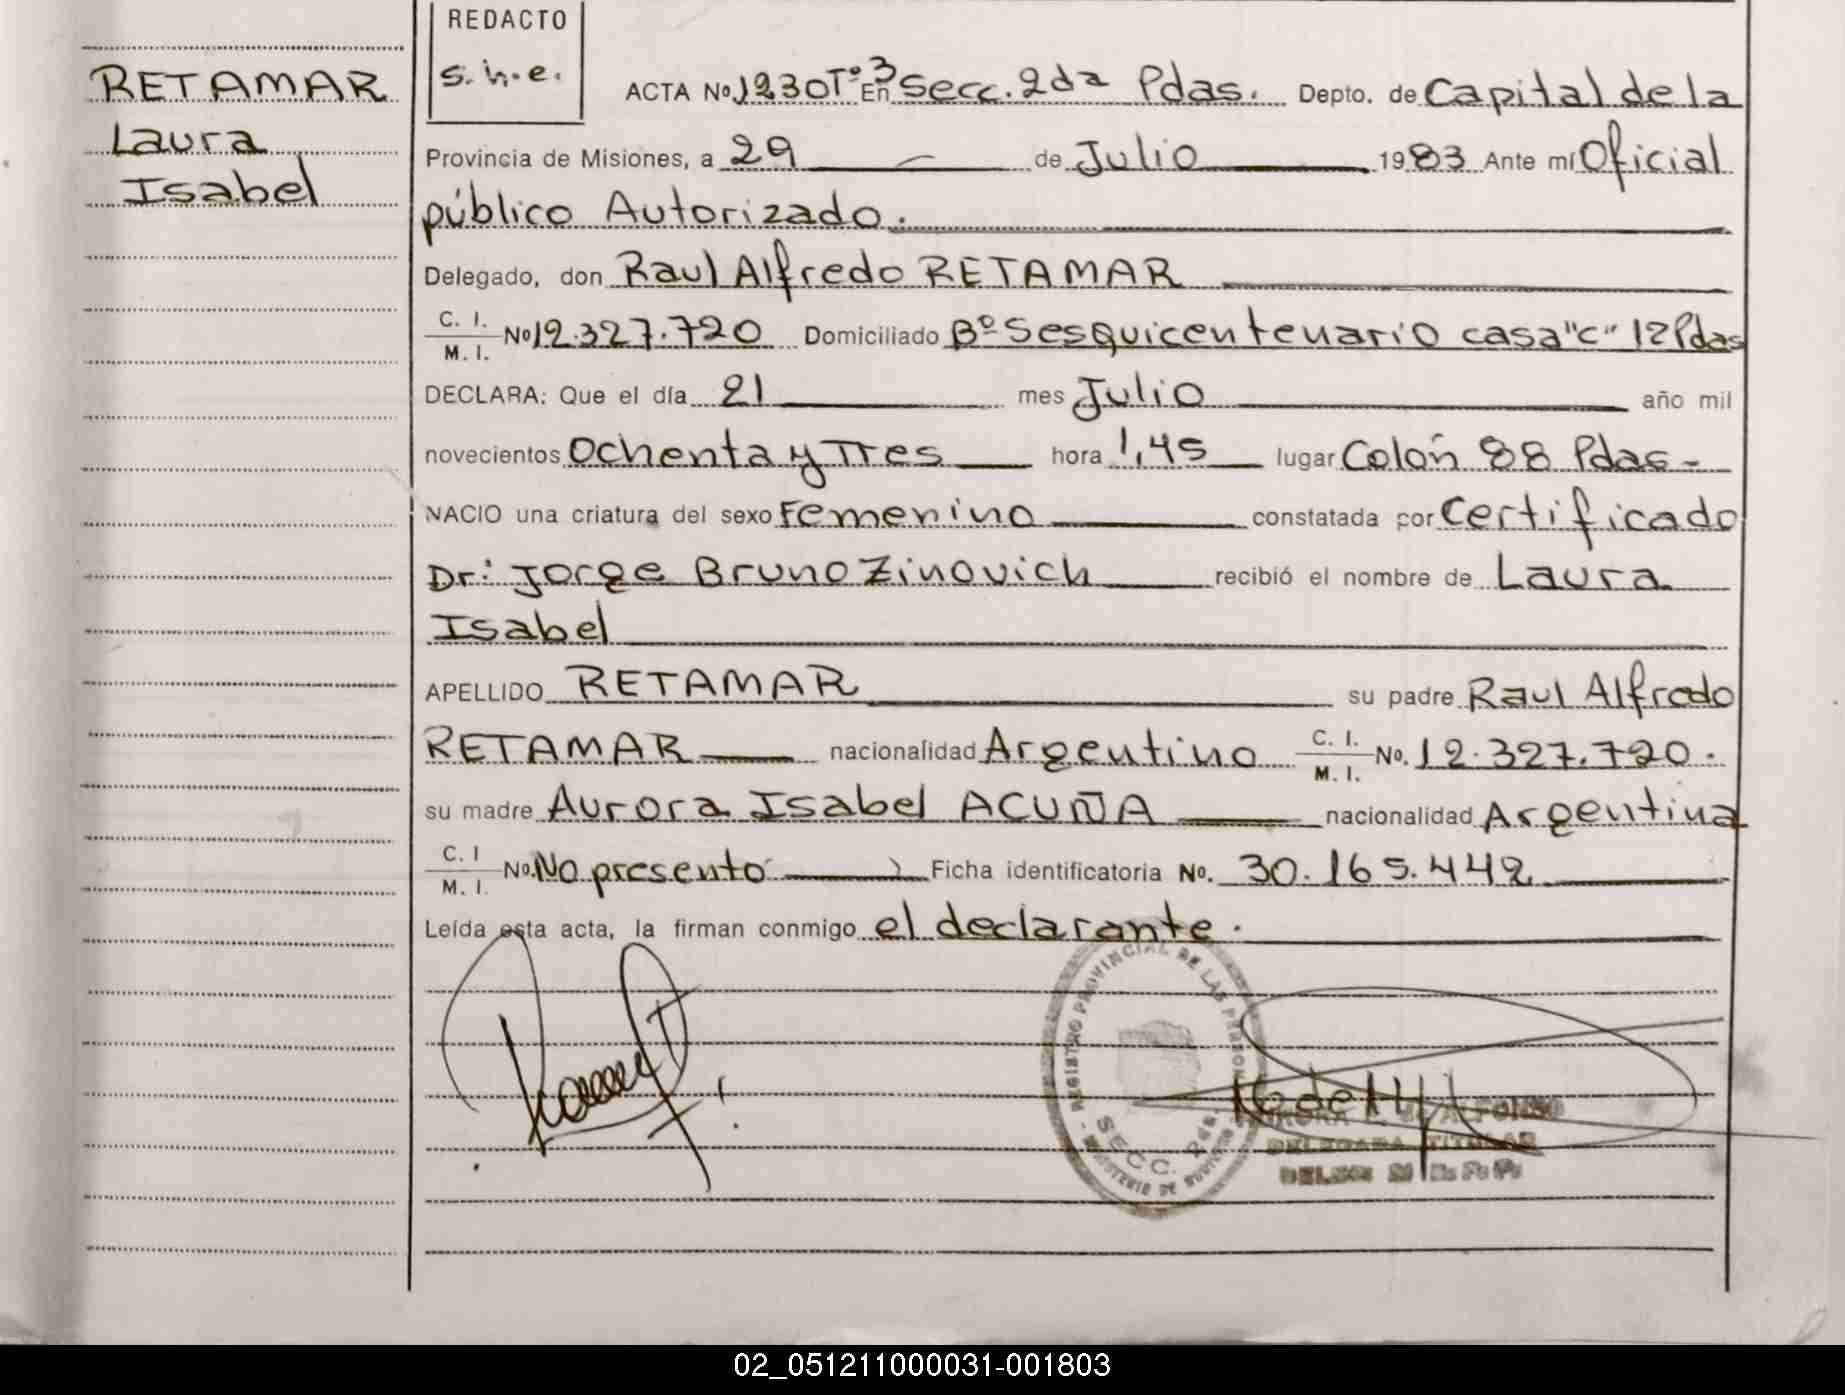 RETAMAR
Laura
Isabel
REDACTO
s.h.e.
ACTA No 1230 Tº 3 En Secc. 2da Pdas. Depto. de Capital de la
Provincia de Misiones, a 29 de Julio 1983 Ante mí Oficial
público Autorizado.
Delegado, don Raul Alfredo RETAMAR
C. I. M. I. No 12.327.720 Domiciliado Bº Sesquicentenario casa "c" 12 Pdas
DECLARA: Que el día 21 mes Julio año mil
novecientos Ochenta y Tres hora 1,45 lugar Colón 88 Pdas-
NACIO una criatura del sexo Femenino constatada por Certificado
Dr: Jorge Bruno Zinovich recibió el nombre de Laura
Isabel
APELLIDO RETAMAR su padre Raul Alfredo
RETAMAR nacionalidad Argentino C. I. M. I. No. 12.327.720.
su madre Aurora Isabel ACUÑA nacionalidad Argentina
C. I M. I. No. No presento Ficha identificatoria No. 30.165.442
Leída esta acta, la firman conmigo el declarante.
REGISTRO PROVINCIAL DE LAS PERSONAS
SECC. 2da.
DELEGADA TITULAR
02_051211000031-001803